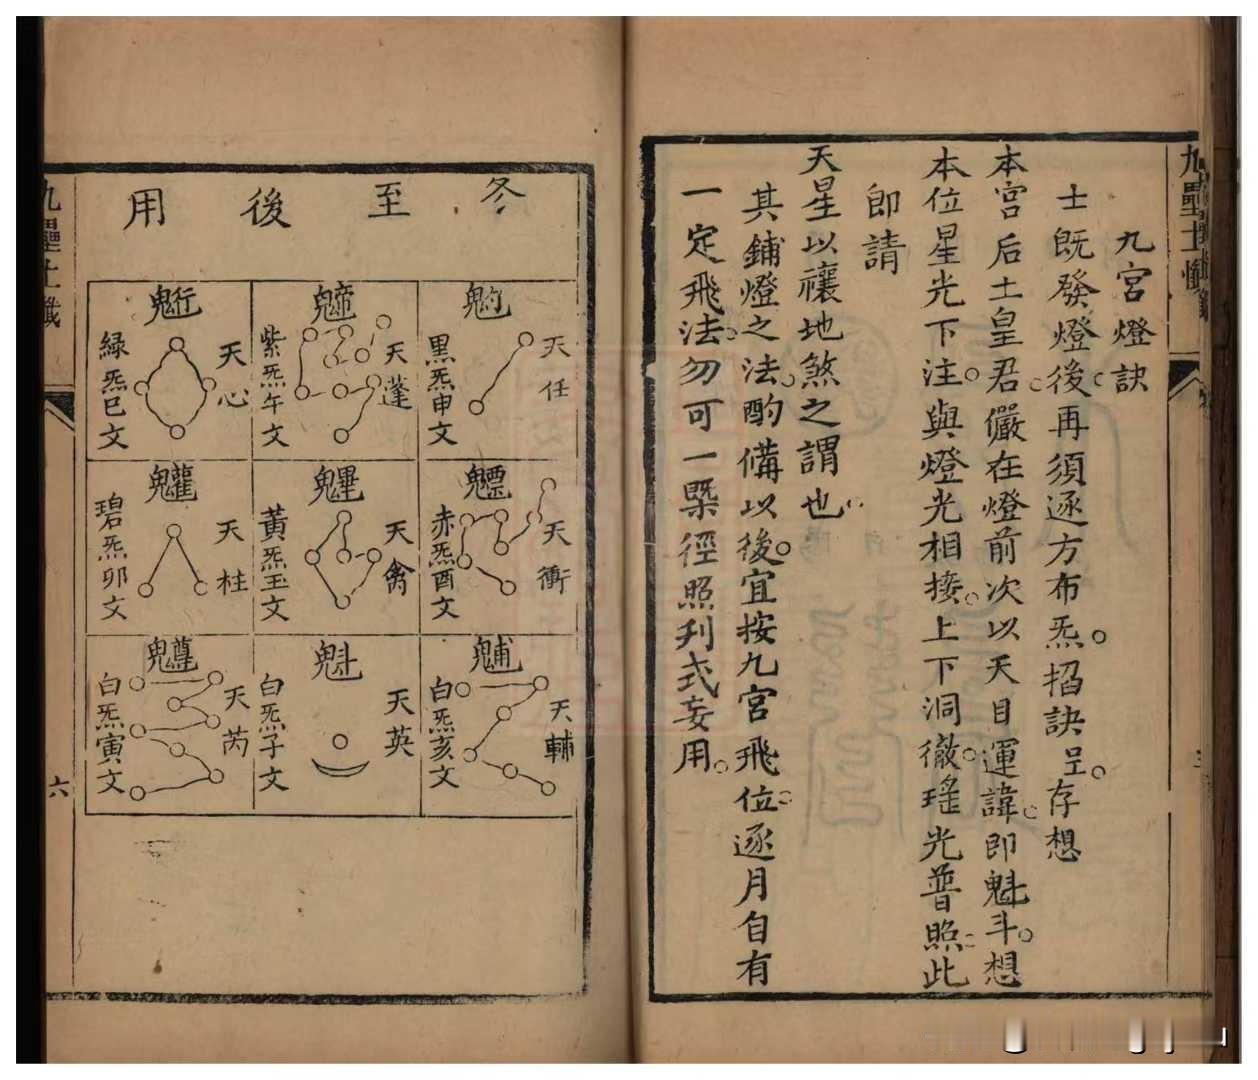 九壘土懺
九宮燈訣
士既發燈後再須逐方布炁掐訣存想
本宮后土皇君儼在燈前次以天目運諱即魁斗想
本位星光下注與燈光相接上下洞徹瑤光普照此
即請
天星以禳地煞之謂也
其鋪燈之法酌備以後宜按九宮飛位逐月自有
一定飛法勿可一槩徑照刋式妄用
冬至後用
天任
黑炁申文
天蓬
紫炁午文
天心
綠炁巳文
魒
天衝
赤炁酉文
天禽
黃炁玉文
天柱
碧炁卯文
天輔
白炁亥文
魁
天英
白炁子文
天芮
白炁寅文
九壘土懺
六